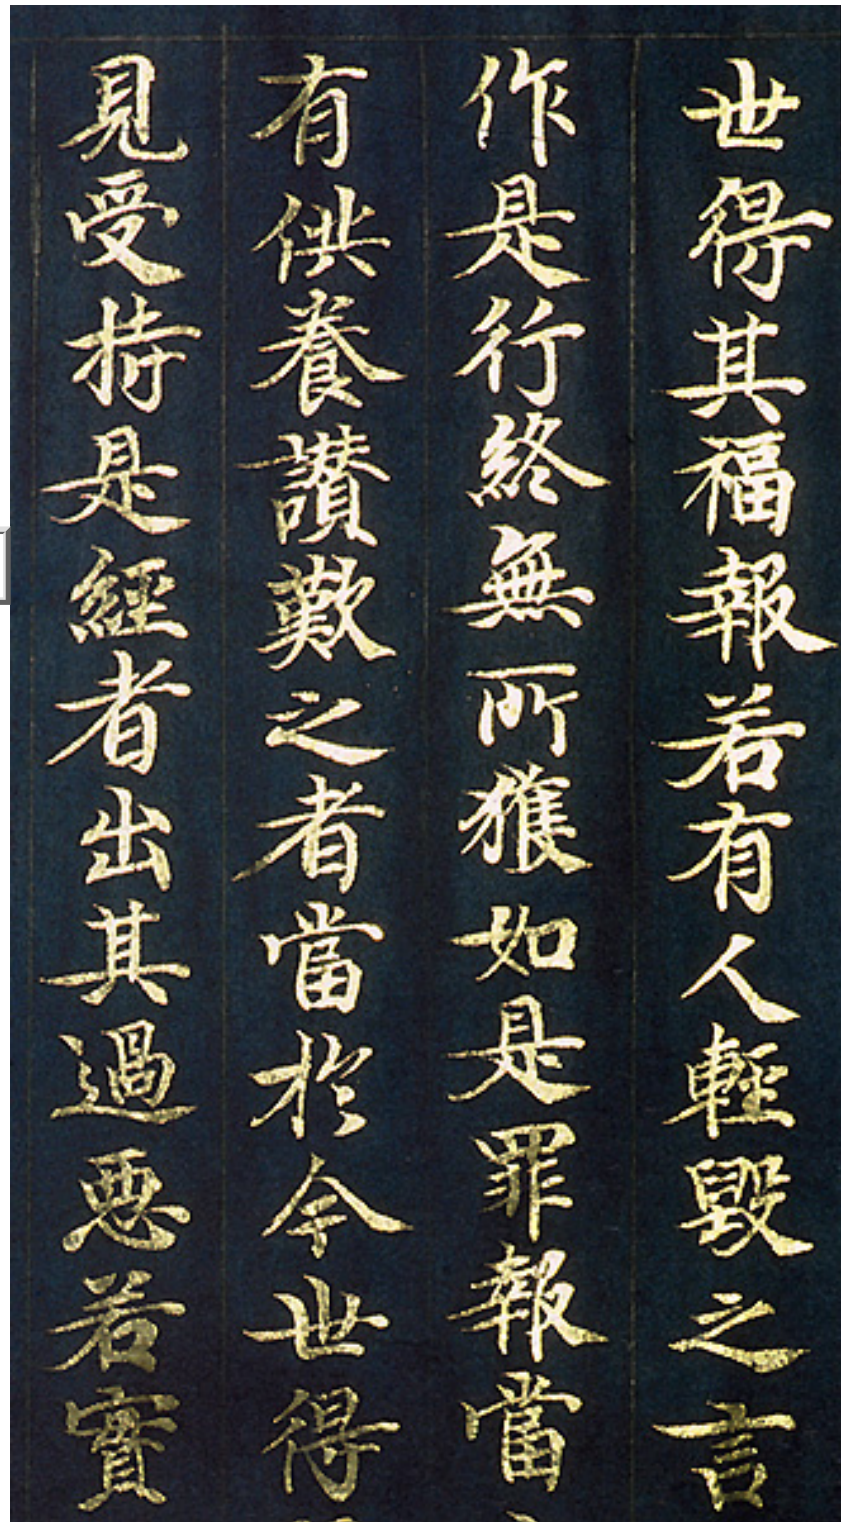 世得其福報若有人輕毀之言
作是行終無所獲如是罪報當
有供養讃歎之者當於今世得
見受持是經者出其過惡若實